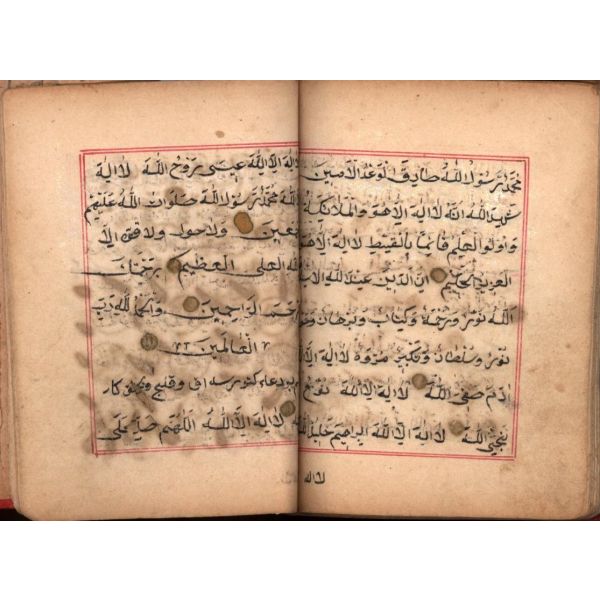 محمد رسول الله صادق الوعد الامين
شهد الله انه لا اله الا هو والملائكة
واولوا العلم قائما بالقسط لا اله الا هو
العزيز الحكيم ان الدين عند الله الاسلام
الله نور ورحمة وكتاب وبرهان
نور وسلطان لا اله الا الله
ادم صفي الله لا اله الا الله نوح
نجي الله لا اله الا الله ابراهيم خليل الله
لا اله
لا اله الا الله عيسى روح الله لا اله
الا الله محمد رسول الله صلوات الله عليهم
اجمعين ولا حول ولا قوة الا
بالله العلي العظيم برحمتك
يا ارحم الراحمين والحمد لله رب
العالمين
بو دعاء
لا اله الا الله اللهم صل على